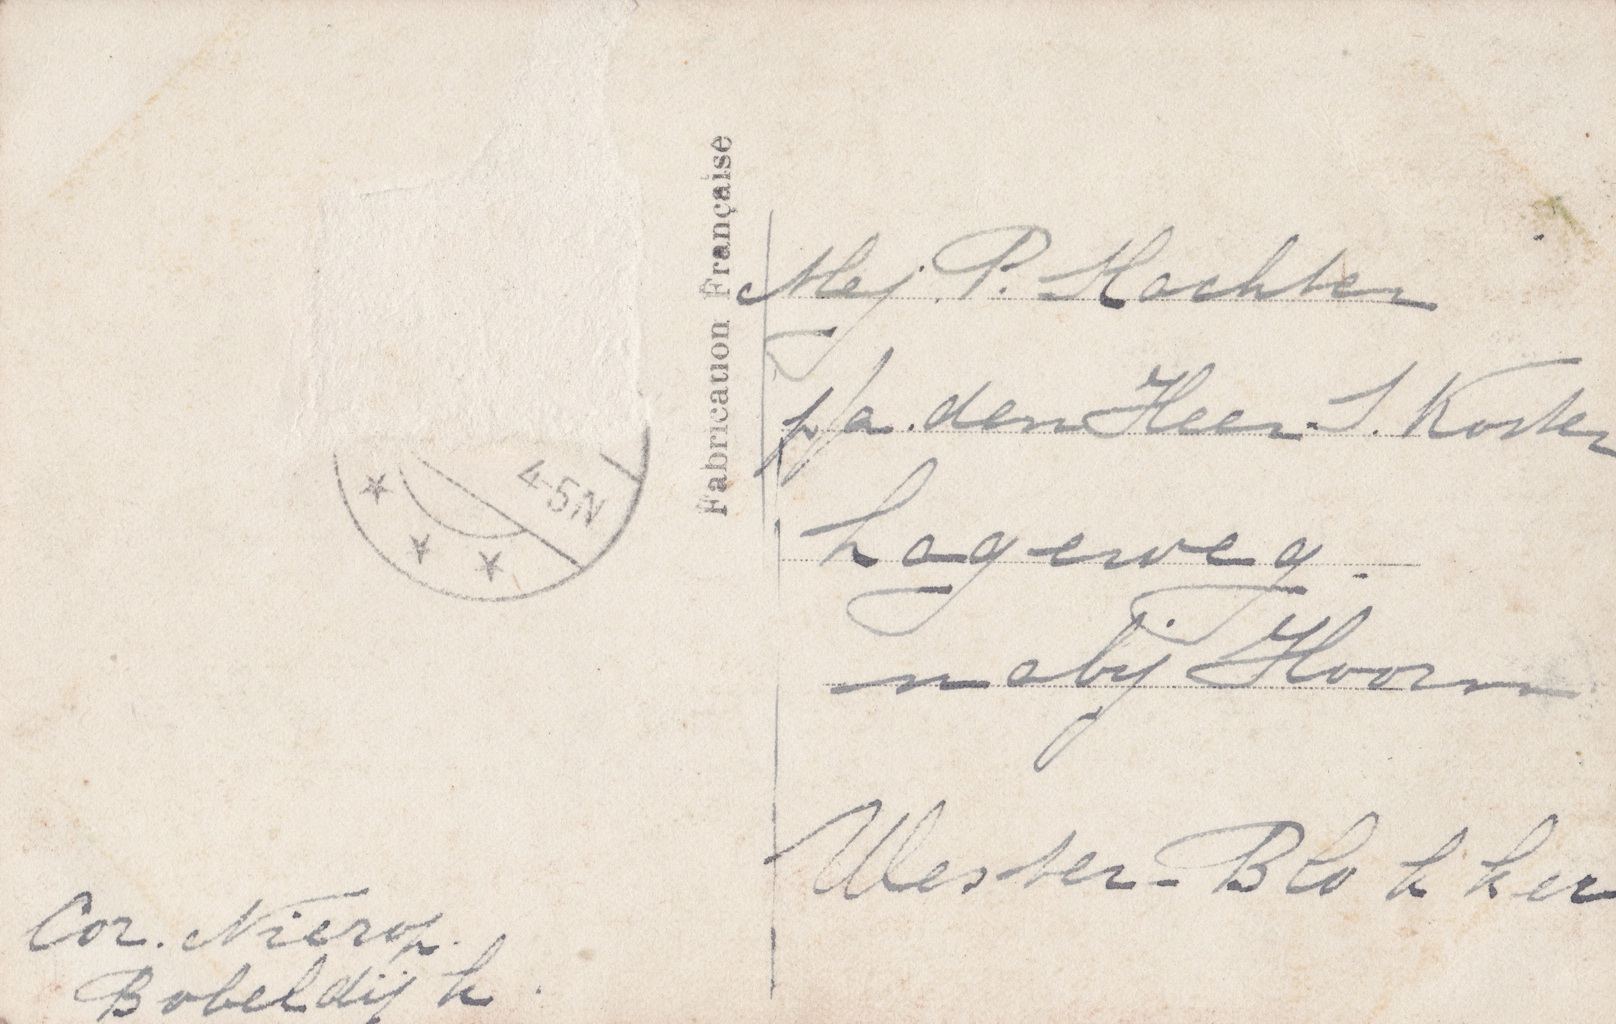 Cor. Nierop.
Bobeldijk.
4-5N
Fabrication Française
Mej. P. Hachter
p/a. den Heer. S. Koster
Lagerweg.
nabij Hoorn
Wester-Blokker